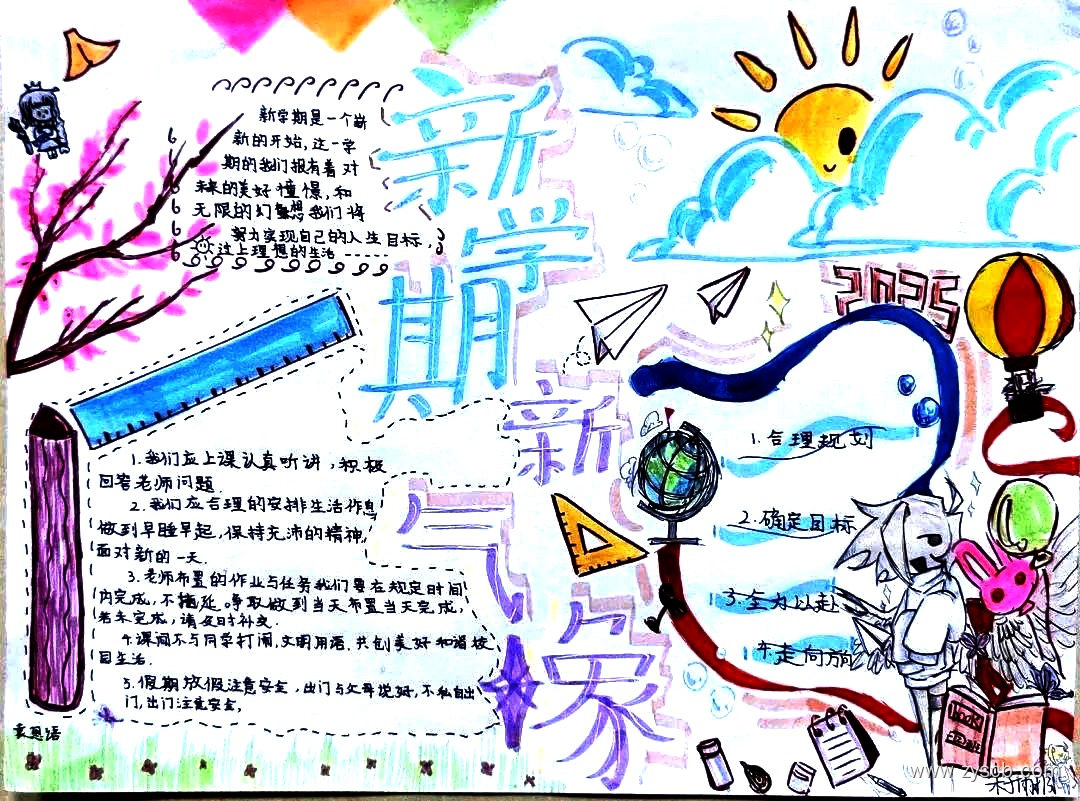 新学期新气象
新学期是一个崭
新的开始,这一学
期的我们报有着对
未来的美好憧憬,和
无限的幻想我们将
努力实现自己的人生目标,
过上理想的生活------
2025
1.我们应上课认真听讲,积极
回答老师问题
2.我们应合理的安排生活作息
做到早睡早起,保持充沛的精神,
面对新的一天.
3.老师布置的作业与任务我们要在规定时间
内完成,不拖延.争取做到当天布置当天完成,
若未完成,请及时补交.
4.课间不与同学打闹,文明用语.共创美好和谐校
园生活.
5.假期放假注意安全,出门与父母说好,不私自出
门,出门注意安全,
1.合理规划
2.确定目标
3.全力以赴
4.走向前
袁恩语
www.zyscb.com